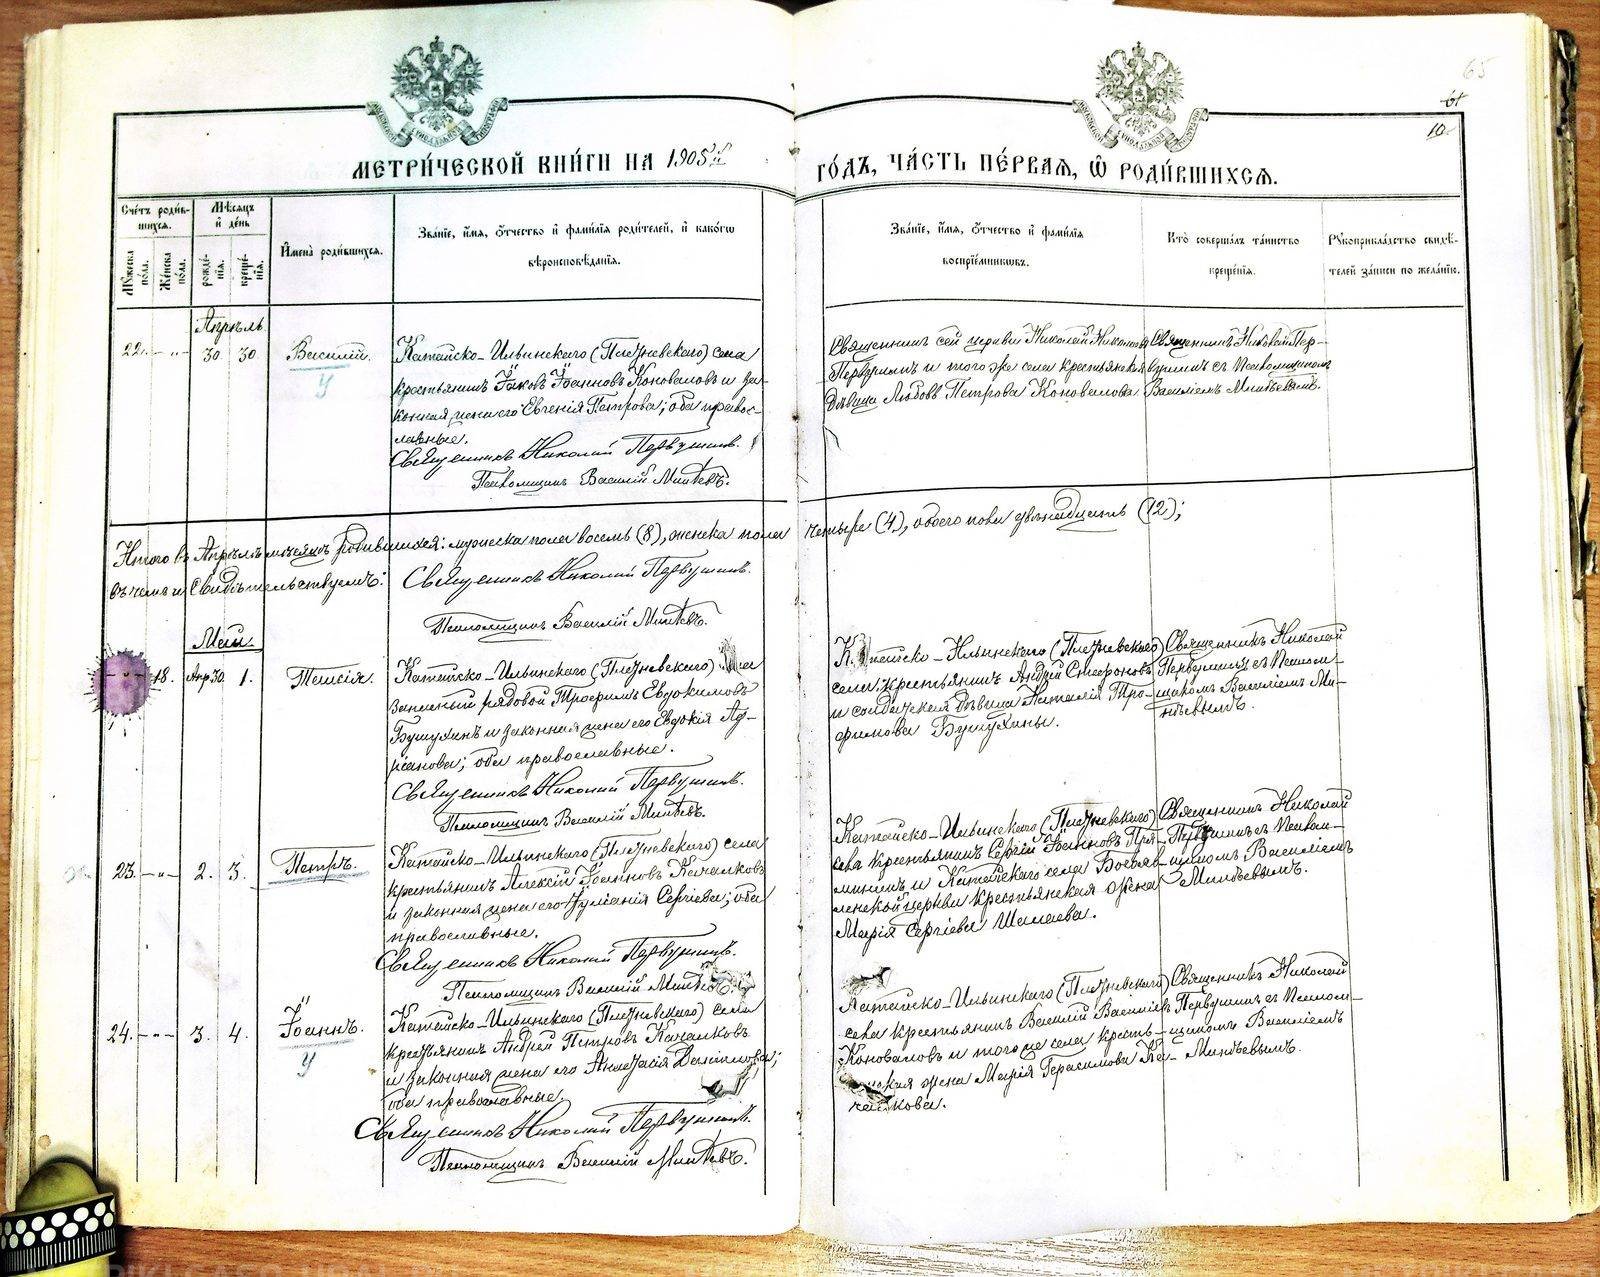 65
61
10
МЕТРИ́ЧЕСКОЙ КНИ́ГИ НА 1905й ГО́ДЪ, ЧА́СТЬ ПЕ́РВАЯ, Ѽ РОДИ́ВШИХСЯ.
Сче́тъ роди́в-
шихся.
Мꙋжеска по́ла.
Же́нска по́ла.
Мѣ́сяцъ и де́нь
рожде́-
нія.
креще́-
нія.
Имена̀ роди́вшихся.
Зва́ніе, и́мя, о́тчество и фами́лія роди́телей, и како́гѡ
вѣроисповѣ́данія.
Зва́ніе, и́мя, о́тчество и фами́лія
воспріе́мникѡвъ.
Кто̀ соверша́лъ та́инство
креще́нія.
Рꙋкоприкла́дство свидѣ́-
телей за́писи по жела́нію.
Апрѣль
22. — „ — 30 30
Василій.
У
Катайско-Ильинскаго (Плотневскаго) села
крестьянинъ Іаковъ Іоанновъ Коноваловъ и за-
конная жена его Евгенія Петрова; оба право-
славные.
Священникъ Николай Первушинъ.
Псаломщикъ Василій Минѣевъ.
Священникъ сей церкви Николай
Первушинъ и того же села крестьянская
дѣвица Любовь Петрова Коновалова
Священникъ Николай Пер-
вушинъ съ Псаломщикомъ
Василіемъ Минѣевымъ.
Итого въ Апрѣлѣ мѣсяцѣ родившихся: мужеска пола восемь (8), женска пола четыре (4), обоего пола двѣнадцать (12);
въ чемъ и свидѣтельствуемъ:
Священникъ Николай Первушинъ.
Псаломщикъ Василій Минѣевъ.
Май.
— 18. Апр 30 1.
Таисія.
Катайско-Ильинскаго (Плотневскаго) села
запасный рядовой Трофимъ Евдокимовъ
и законная жена его Евдокія Ад-
ріанова; оба православные.
Священникъ Николай Первушинъ.
Псаломщикъ Василій Минѣевъ.
Катайско-Ильинскаго (Плотневскаго)
села крестьянинъ Андрей Стефановъ
и солдатская дѣвица Наталія Тро-
фимова
Священникъ Николай
Первушинъ съ Псалом-
щикомъ Василіемъ Ми-
нѣевымъ.
23. — „ — 2. 3.
Петръ.
Катайско-Ильинскаго (Плотневскаго) села
крестьянинъ Алексій Іоанновъ Качалковъ
и законная жена его Іуліанія Сергіева; оба
православные.
Священникъ Николай Первушинъ.
Псаломщикъ Василій Минѣевъ.
Катайско-Ильинскаго (Плотневскаго)
села крестьянинъ Сергій Іоанновъ Пря-
и Катайскаго села Богояв-
ленской церкви крестьянская жена
Марія Сергіева Шалаева.
Священникъ Николай
Первушинъ съ Псалом-
щикомъ Василіемъ
Минѣевымъ.
24. — „ — 3. 4.
Іоаннъ.
У
Катайско-Ильинскаго (Плотневскаго) села
крестьянинъ Андрей Петровъ Качалковъ
и законная жена его Анастасія Даніилова;
оба православные.
Священникъ Николай Первушинъ.
Псаломщикъ Василій Минѣевъ.
Катайско-Ильинскаго (Плотневскаго)
села крестьянинъ Василій Василіевъ
Коноваловъ и того же села кресть-
янская жена Марія Герасимова Ка-
чалкова.
Священникъ Николай
Первушинъ съ Псалом-
щикомъ Василіемъ
Минѣевымъ.